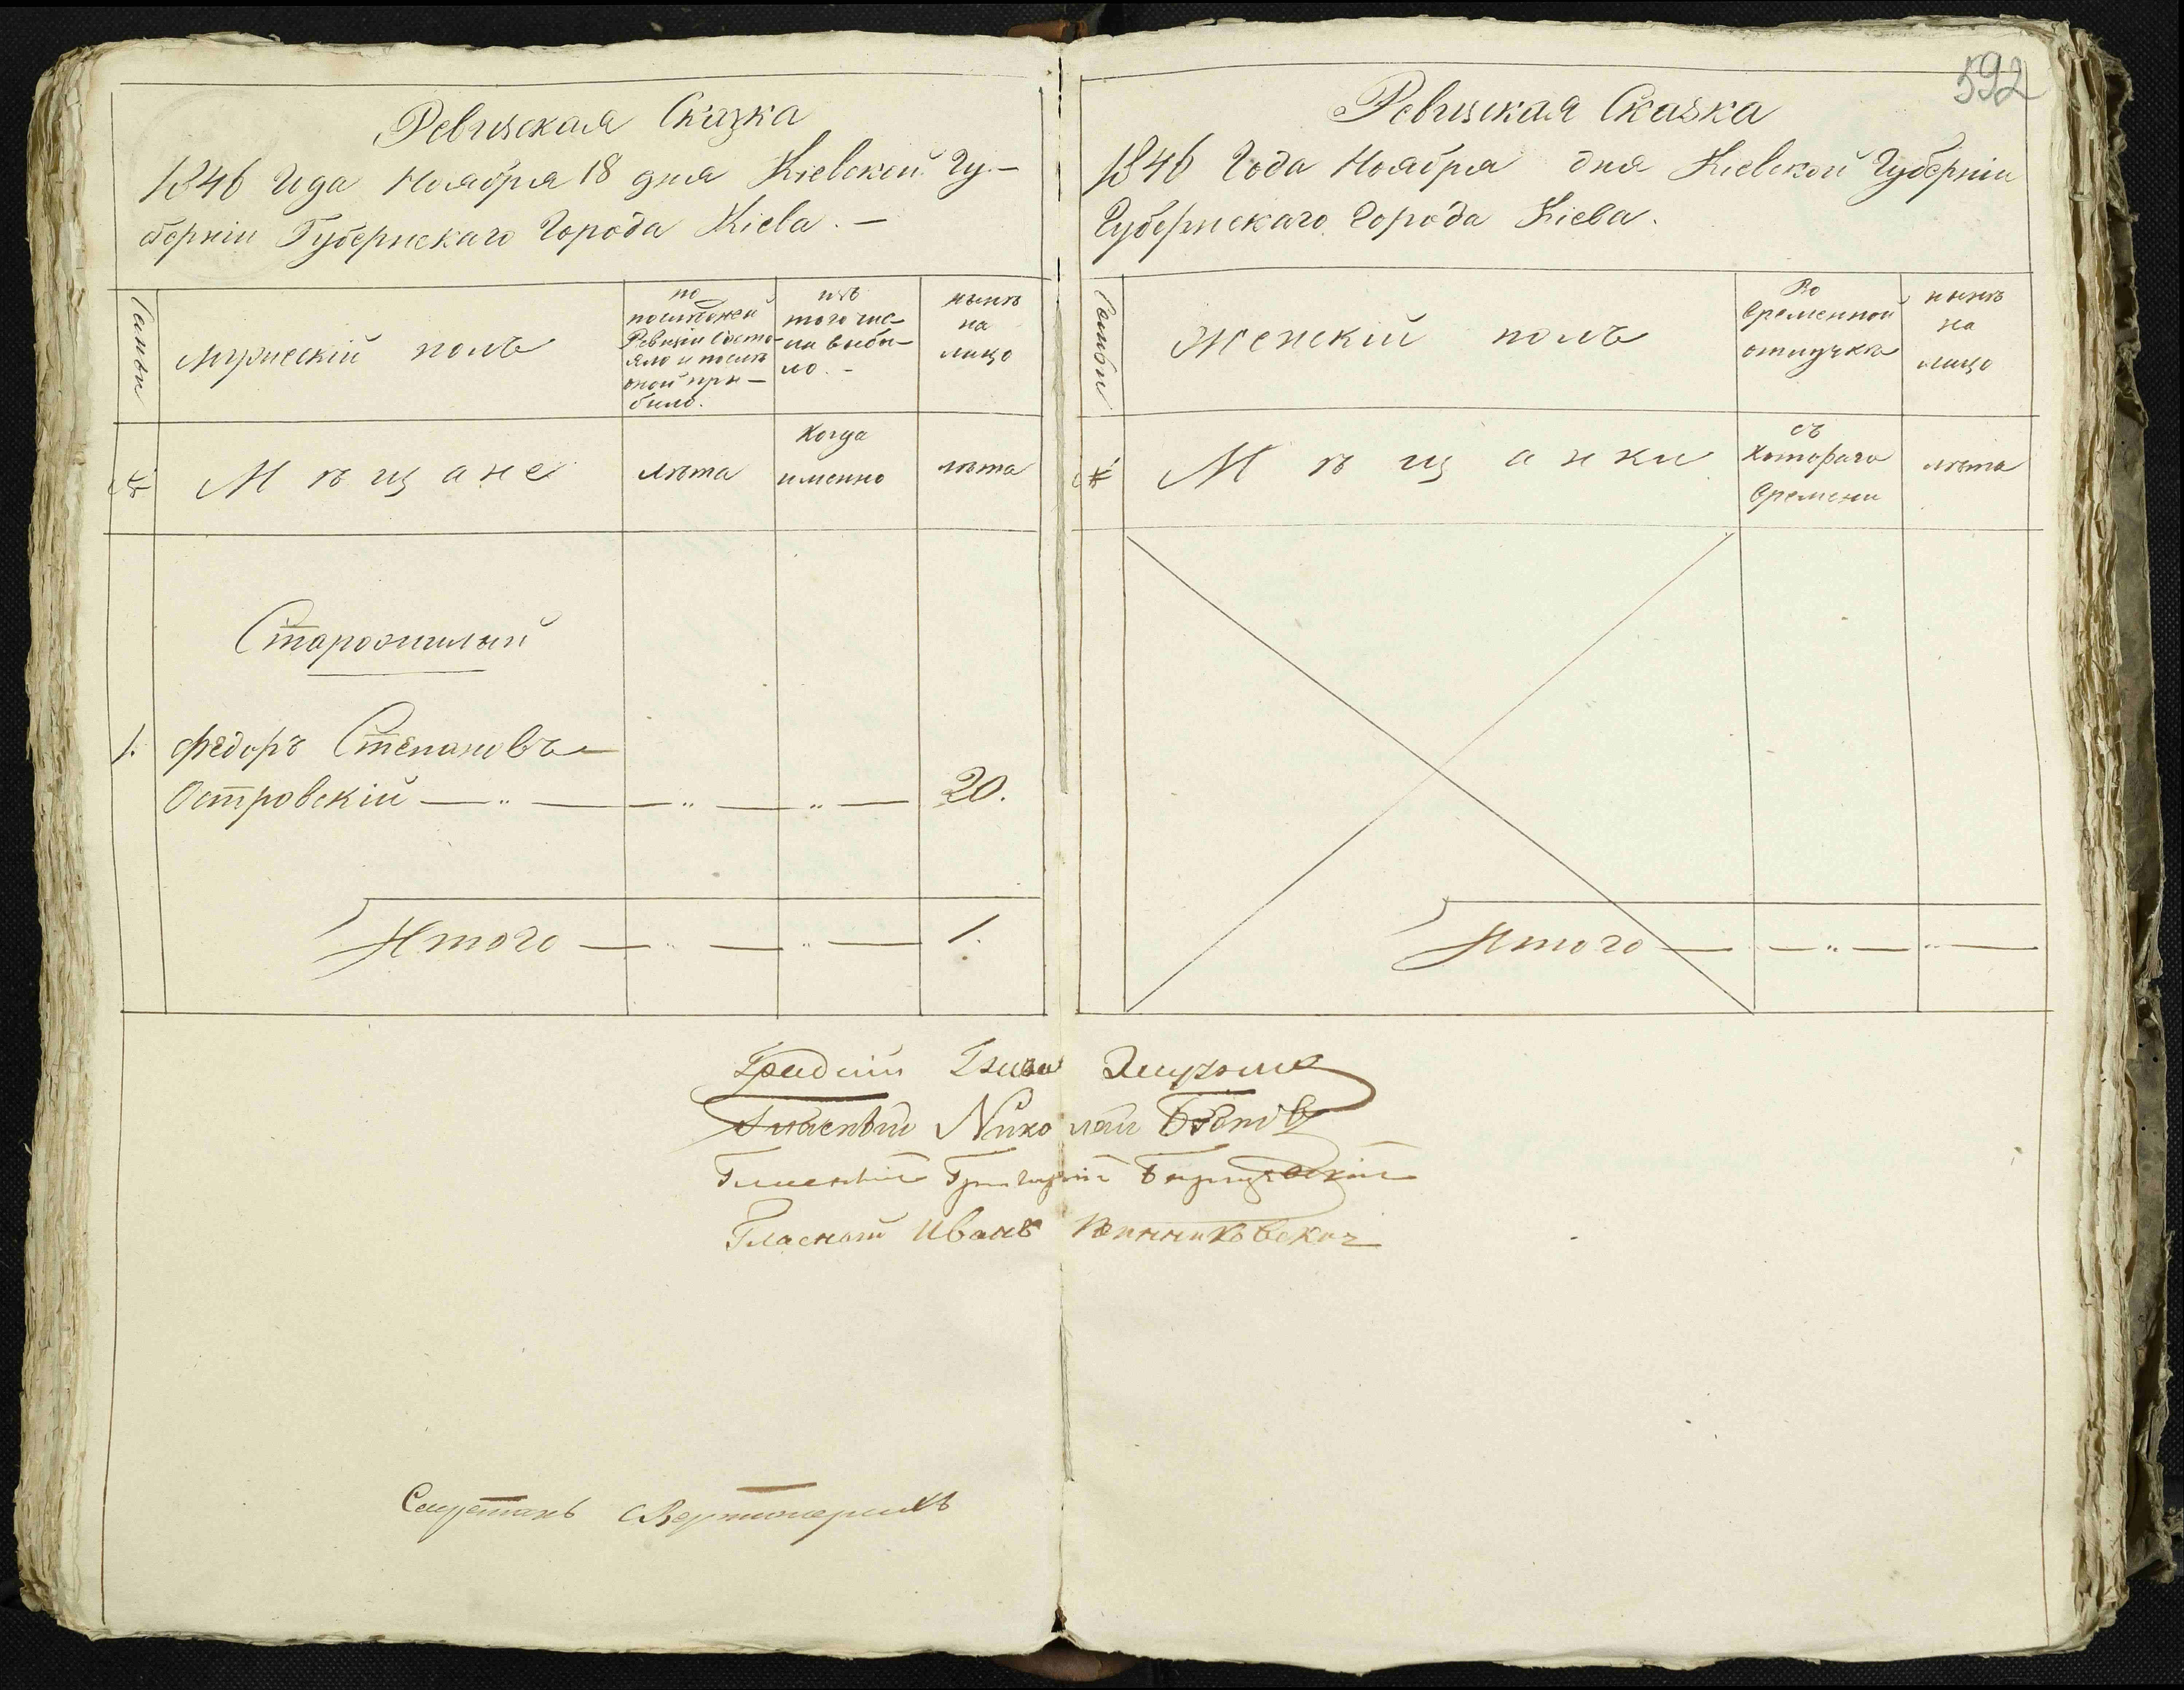 Ревизская Сказка
1846 года Ноября 18 дня Кіевской Гу-
берніи Губернскаго Города Кіева. —
Семьи
мужескій полъ
по
последней
Ревизіи состо-
яло и после
оной при-
было.
изъ
того чис-
ла выбы-
ло. -
нынѣ
на
лицо
№
Мѣщане
лѣта
Когда
именно
лѣта
Старожилый
1. Федоръ Степановъ —
Островскій — „ — — „ — „ — 20.
Итого — „ — „ — 1.
592
Ревизская Сказка
1846 Года Ноября дня Кіевской Губерніи
Губернскаго Города Кіева.
Семьи
Женскій полъ
Во
временной
отлучкѣ
нынѣ
на
лицо
№
Мѣщанки
съ
котораго
времени
лѣта
Итого — — „ — „ —
Градскій Глава
Гласный Николай
Гласный Григорій
Гласный Иванъ Винниковскій
Секретарь